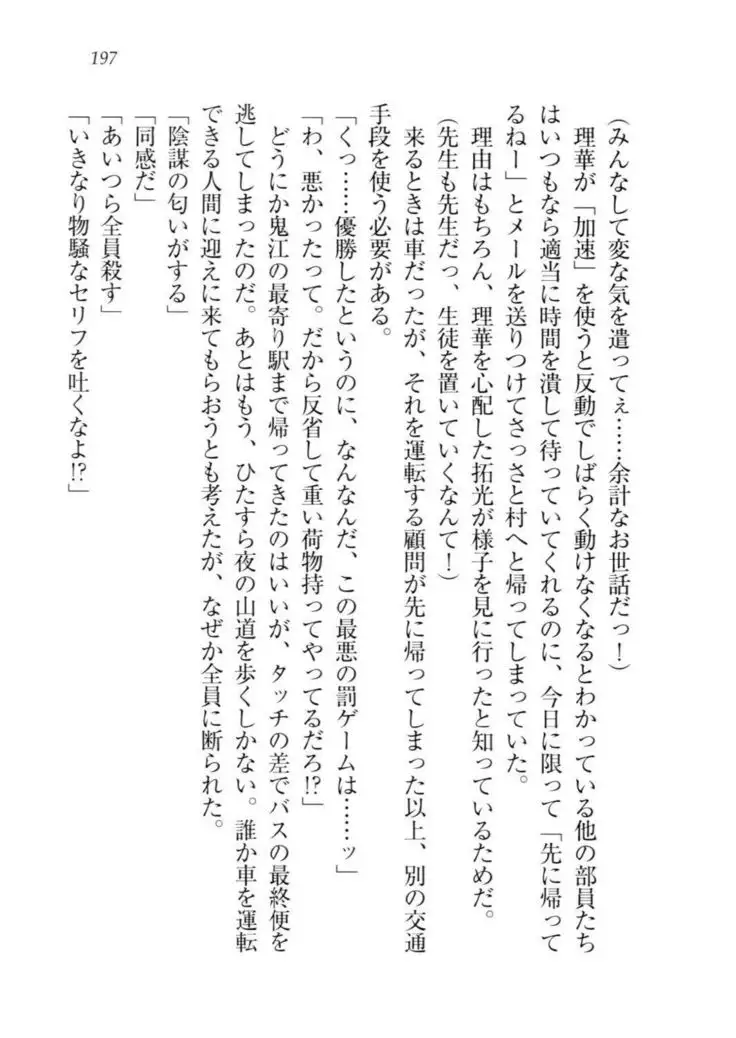 197
(みんなして変な気を遣ってぇ……余計なお世話だっ!)
理華が「加速」を使うと反動でしばらく動けなくなるとわかっている他の部員たち
はいつもなら適当に時間を潰して待っていてくれるのに、今日に限って「先に帰って
るねー」とメールを送りつけてさっさと村へと帰ってしまっていた。
理由はもちろん、理華を心配した拓光が様子を見に行ったと知っているためだ。
(先生も先生だっ、生徒を置いていくなんて!)
来るときは車だったが、それを運転する顧問が先に帰ってしまった以上、別の交通
手段を使う必要がある。
「くっ……優勝したというのに、なんなんだ、この最悪の罰ゲームは……ッ」
「わ、悪かったって。だから反省して重い荷物持ってやってるだろ!?」
どうにか鬼江の最寄り駅まで帰ってきたのはいいが、タッチの差でバスの最終便を
逃してしまったのだ。あとはもう、ひたすら夜の山道を歩くしかない。誰か車を運転
できる人間に迎えに来てもらおうとも考えたが、なぜか全員に断られた。
「陰謀の匂いがする」
「同感だ」
「あいつら全員殺す」
「いきなり物騒なセリフを吐くなよ!?」